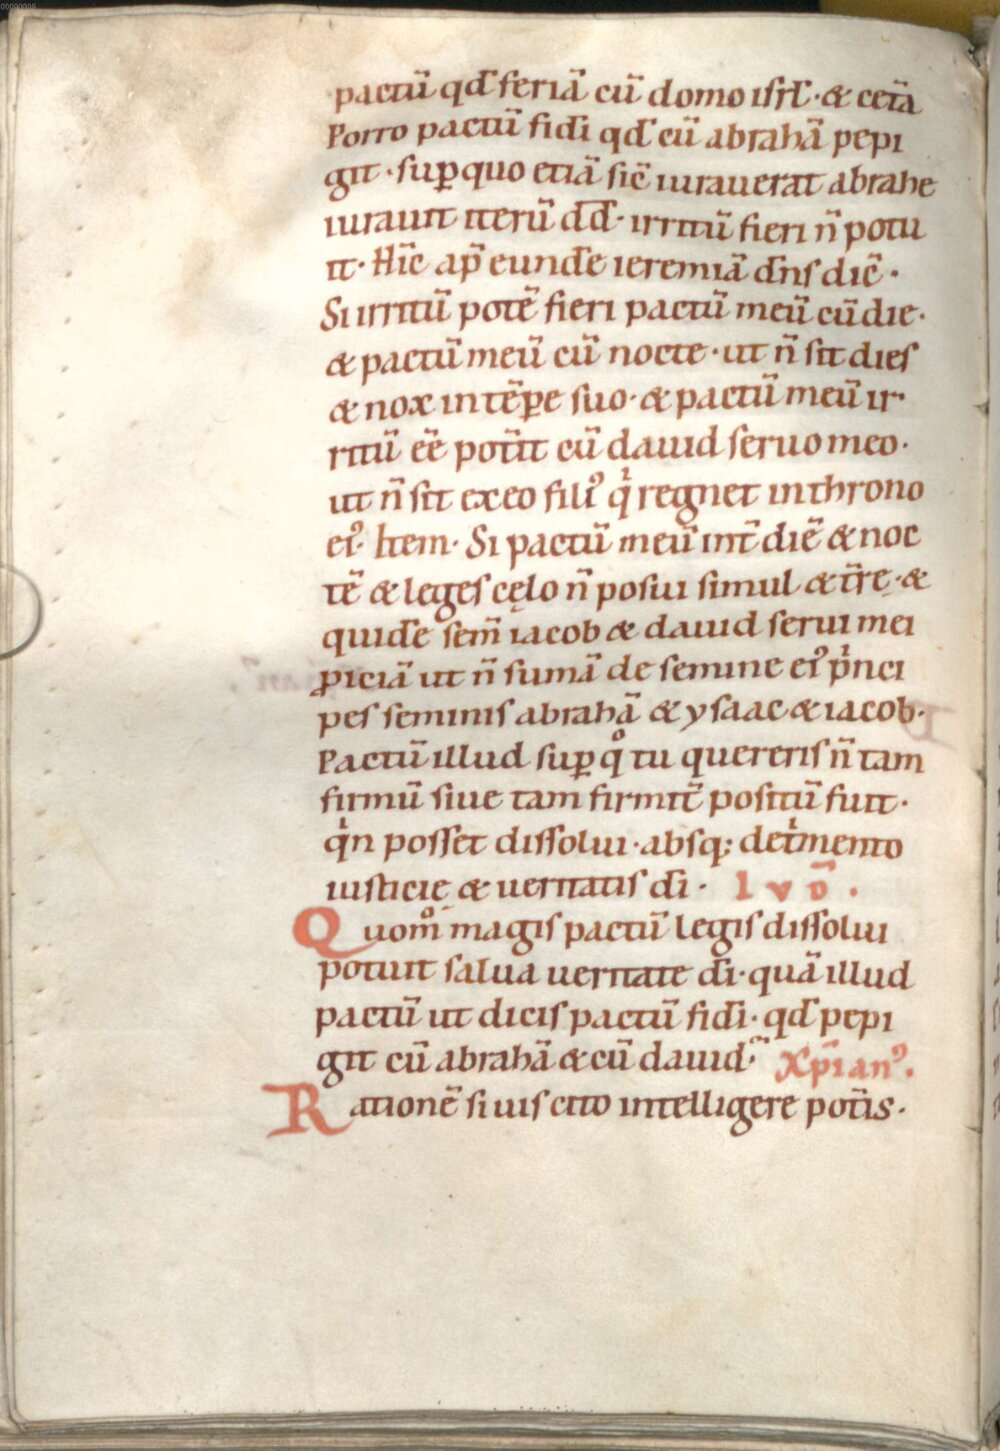 00090000
pactū qđ feriā cū domo isrł · & cet̄a
Porro pactū fidi qđ cū abrahā pepi
git · suꝑ quo etiā sic̄ iurauerat abrahe
iurauit iterū d̄d̄ · irritū fieri n̄ potu
it · Hīc ap̄ eund̄e ieremiā dn̄s dic̄ ·
Si irritū potē fieri pactū meū cū die ·
& pactū meū cū nocte · ut n̄ sit dies
& nox in tēꝑe suo · & pactū meū ir
ritū eē pot̄it cū dauid seruo meo ·
ut n̄ sit ex eo filiꝰ qͥ regnet in throno
eiꝰ · Item · Si pactū meū int̄ diē & noc
tē & leges cęlo n̄ posui simul & t̄rę · &
quid̄e sem̄ iacob & dauid serui mei
ꝓiciā ut n̄ sumā de semine eiꝰ pͥnci
pes seminis abrahā & ysaac & iacob ·
Pactū illud suꝑ qͦ tu quereris n̄ tam
firmū siue tam firmit̄ positū fuit ·
qͥn posset dissolui · absq; detͥmento
iusticię & ueritatis di · IVD̄ ·
Quom̊ magis pactū legis dissolui
potuit salua ueritate di · quā illud
pactū ut dicis pactū fidi · qđ pepi
git cū abrahā & cū dauid · Xp̄ianꝰ .
Rationē si uis cito intelligere pot̄is ·